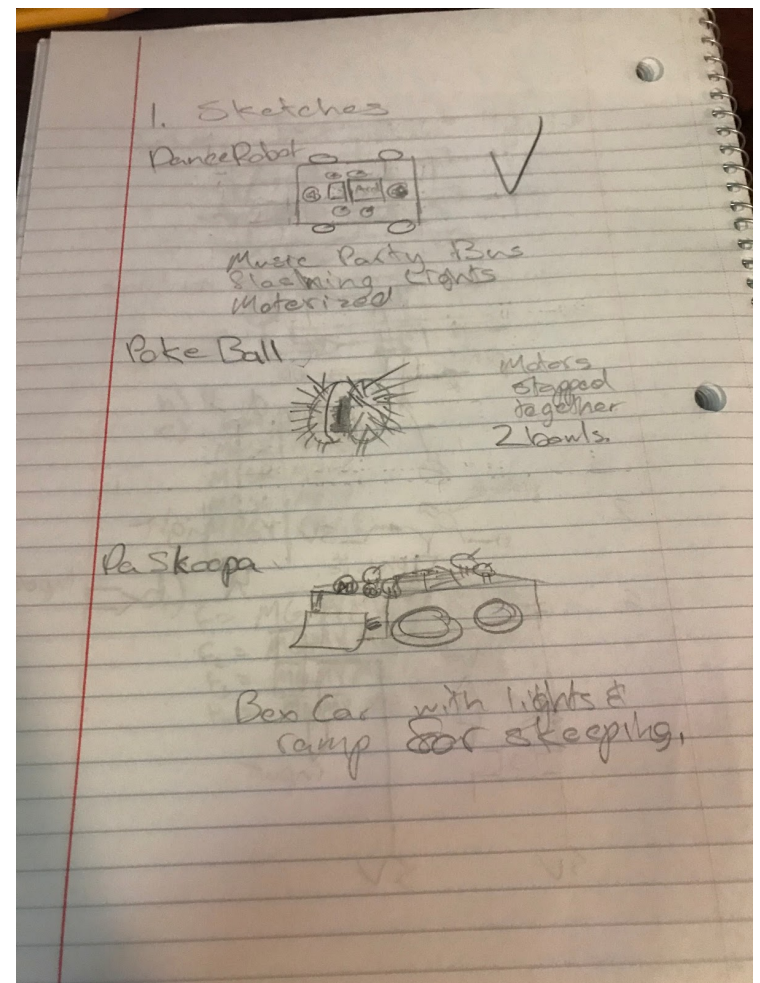 1. Sketches
Dance Robot
Music Party Bus
Slashing Lights
Moterized
Poke Ball
Motors
stapped
together
2 bowls.
Da Skoopa
Box Car with lights &
ramp for skeeping.